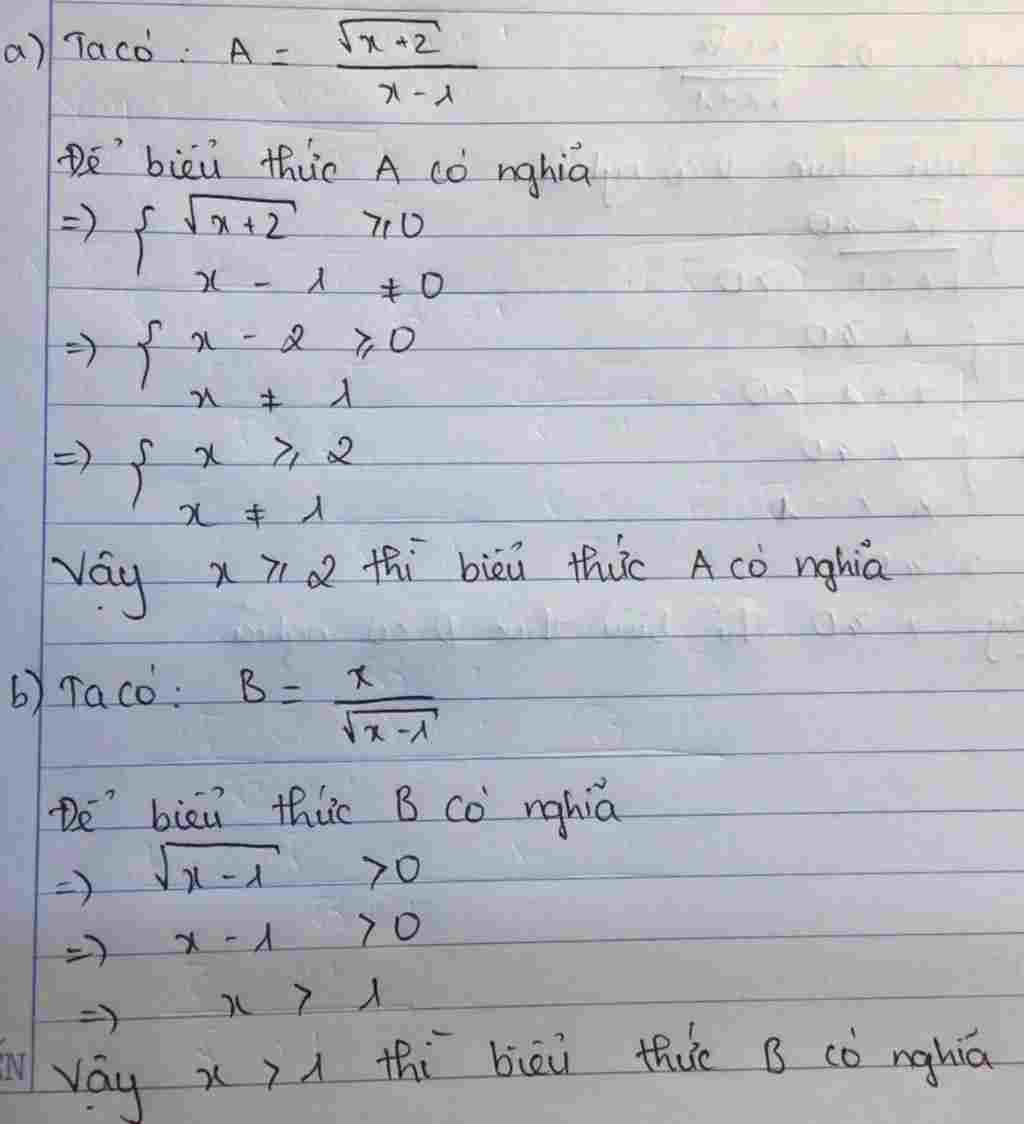 a) Ta có : A = \frac{\sqrt{x+2}}{x-1}
Để biểu thức A có nghĩa
=> { \sqrt{x+2} ≥ 0
x - 1 ≠ 0
=> { x - 2 ≥ 0
x ≠ 1
=> { x ≥ 2
x ≠ 1
Vậy x ≥ 2 thì biểu thức A có nghĩa
b) Ta có : B = \frac{x}{\sqrt{x-1}}
Để biểu thức B có nghĩa
=> \sqrt{x-1} > 0
=> x - 1 > 0
=> x > 1
Vậy x > 1 thì biểu thức B có nghĩa